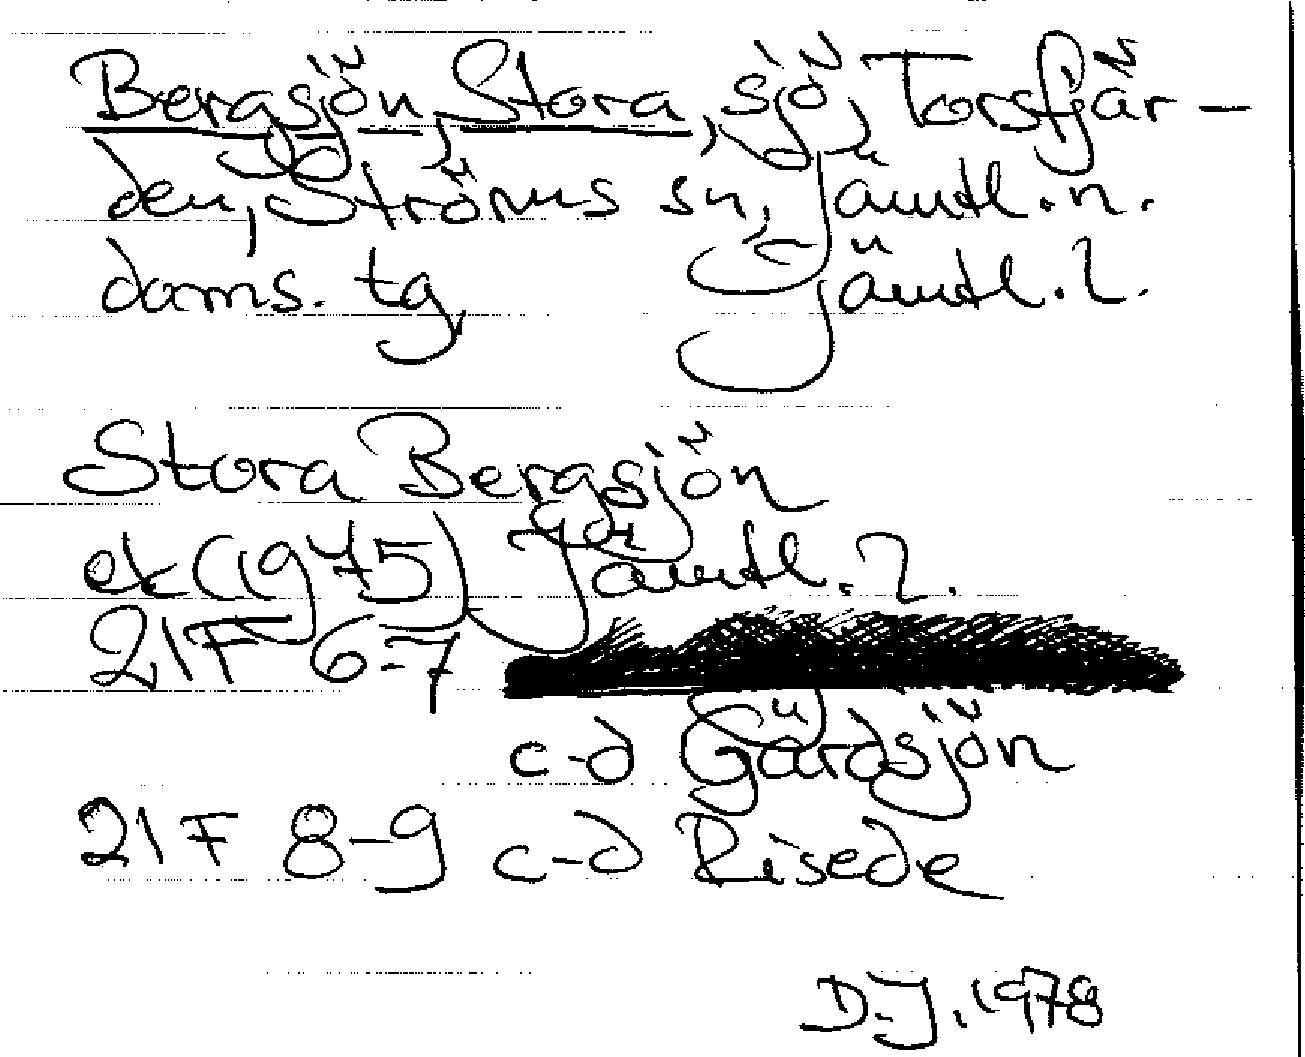 Bergsjön, Stora, sjö, Torsfjär-
den, Ströms sn, Jämtl. n.
doms. tg, Jämtl. l.
Stora Bergsjön
ek (1975) Jämtl. l.
21F 6-7
c-d Gårdsjön
21F 8-9 c-d Risede
D-J. 1978